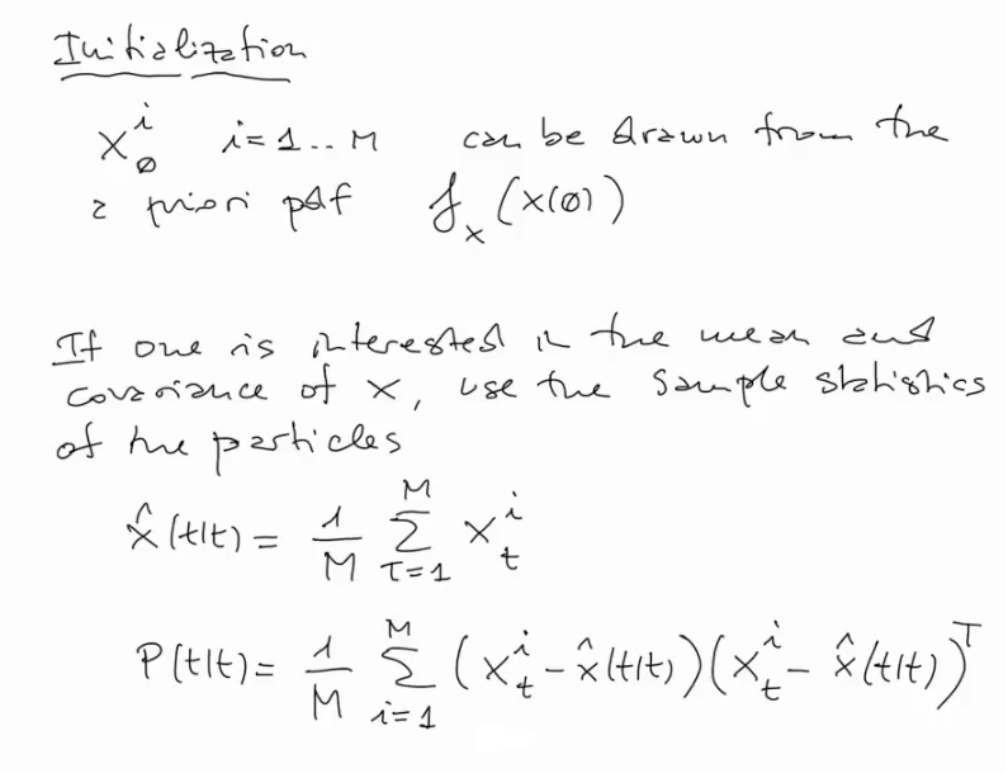 Initialization
x₀ⁱ i=1..M can be drawn from the
a priori pdf fₓ(x(0))
If one is interested in the mean and
covariance of x, use the sample statistics
of the particles
x̂(t|t) = 1/M Σ_{τ=1}^{M} x_t^i
P(t|t) = 1/M Σ_{i=1}^{M} (x_t^i - x̂(t|t))(x_t^i - x̂(t|t))^T